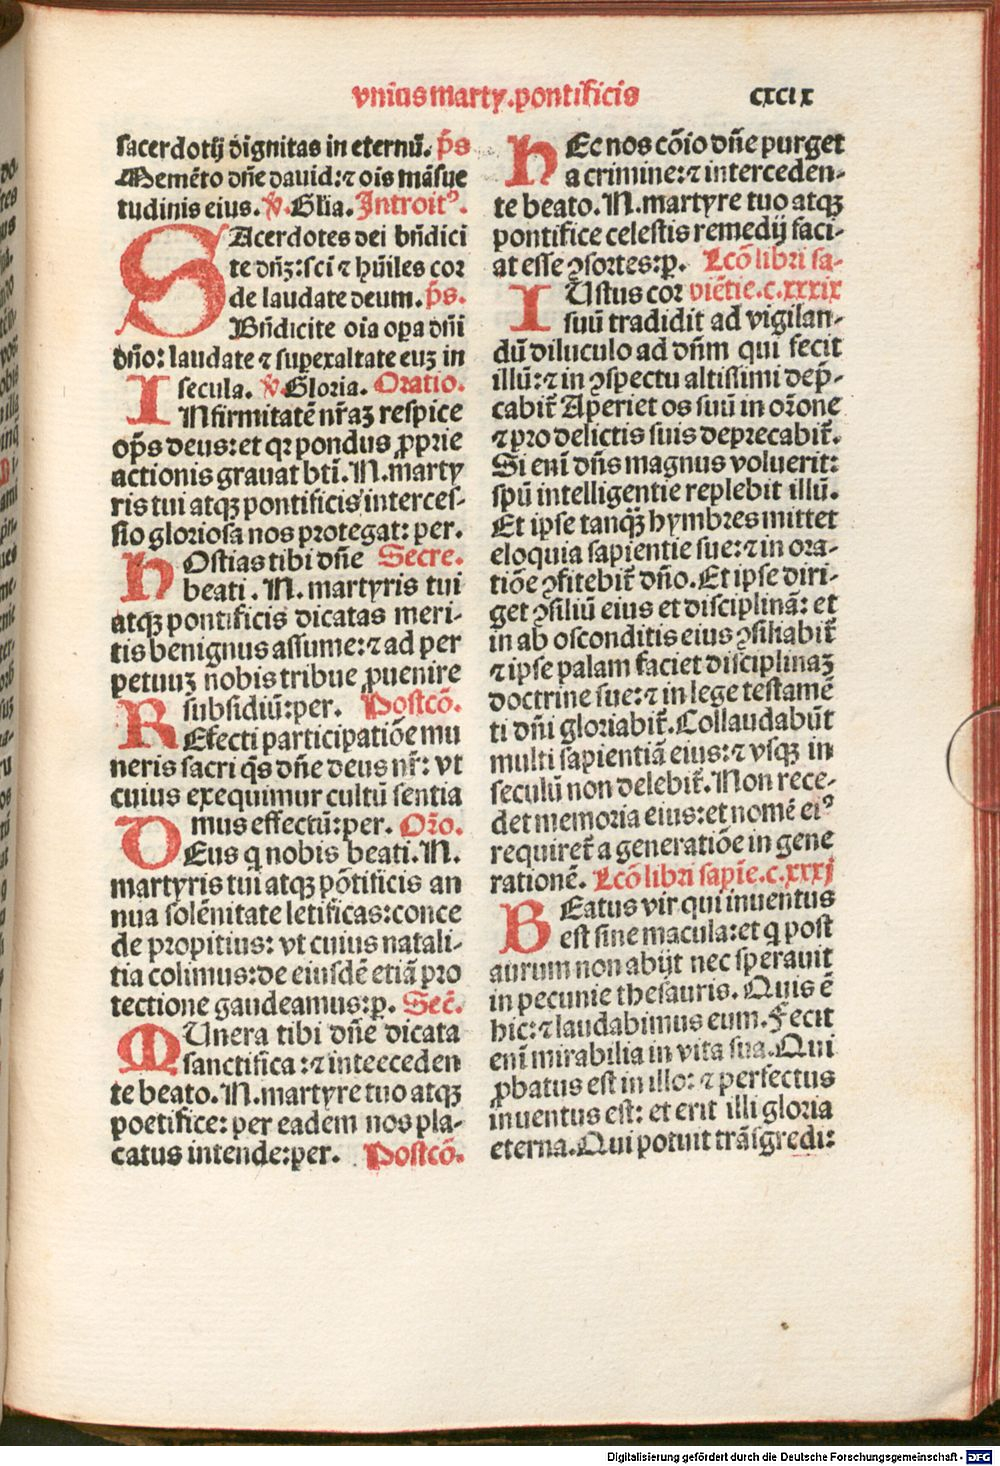 vnius marty. pontificis cxcix
sacerdotij dignitas in eternū. p̄s
Memēto dn̄e dauid: ⁊ oīs māsue
tudinis eius. ℣. Gl̄ia. Introitꝰ.
SAcerdotes dei bn̄dici
te dn̄ꝫ: sc̄i ⁊ hūiles cor
de laudate deum. p̄s.
Bn̄dicite oīa oꝑa dn̄i
dn̄o: laudate ⁊ suꝑexaltate euꝫ in
secula. ℣. Gloria. Oratio.
INfirmitatē nr̄aꝫ respice
op̄s deus: et qꝛ pondus ꝓprie
actionis grauat bt̄i. N. marty
ris tui atqꝫ pontificis interces-
sio gloriosa nos protegat: per.
HOstias tibi dn̄e Secre.
beati. N. martyris tui
atqꝫ pontificis dicatas meri-
tis benignus assume: ⁊ ad per
petuuꝫ nobis tribue ꝓuenire
subsidiū: per. Postcō.
REfecti participatiōe mu
neris sacri q̄s dn̄e deus nr̄: vt
cuius exequimur cultū sentia
mus effectū: per. Orō.
DEus q nobis beati. N.
martyris tui atqꝫ pōtificis an
nua solēnitate letificas: conce
de propitius: vt cuius natali-
tia colimus: de eiusdē etiā pro
tectione gaudeamus: p. Sec̄.
MUnera tibi dn̄e dicata
sanctifica: ⁊ inteeceden
te beato. N. martyre tuo atqꝫ
poetifice: per eadem nos pla-
catus intende: per. Postcō.
HEc nos cōio dn̄e purget
a crimine: ⁊ interceden-
te beato. N. martyre tuo atqꝫ
pontifice celestis remedij faci-
at esse ꝯsortes: p. Lcō libri sa-
IUstus cor piētie. c. xxxix
suū tradidit ad vigilan-
dū diluculo ad dn̄m qui fecit
illū: ⁊ in ꝯspectu altissimi dep̄-
cabit̄ Aperiet os suū in or̄one
⁊ pro delictis suis deprecabit̄.
Si enī dn̄s magnus voluerit:
sp̄ū intelligentie replebit illū.
Et ipse tanqꝫ hymbres mittet
eloquia sapientie sue: ⁊ in ora-
tiōe ꝯfitebit̄ dn̄o. Et ipse diri-
get ꝯsiliū eius et disciplinā: et
in ab osconditis eius ꝯsiliabit̄
⁊ ipse palam faciet disciplinaꝫ
doctrine sue: ⁊ in lege testamē
ti dn̄i gloriabit̄. Collaudabūt
multi sapientiā eius: ⁊ vsqꝫ in
seculū non delebit̄. Non rece-
det memoria eius: et nomē eiꝰ
requiret̄ a generatiōe in gene
rationē. Lcō libri sapīe. c. xxxj
BEatus vir qui inuentus
est sine macula: et q post
aurum non abijt nec sperauit
in pecunie thesauris. Quis ē
hic: ⁊ laudabimus eum. Fecit
enī mirabilia in vita sua. Qui
ꝓbatus est in illo: ⁊ perfectus
inuentus est: et erit illi gloria
eterna. Qui potuit trāsgredi:
Digitalisierung gefördert durch die Deutsche Forschungsgemeinschaft - DFG